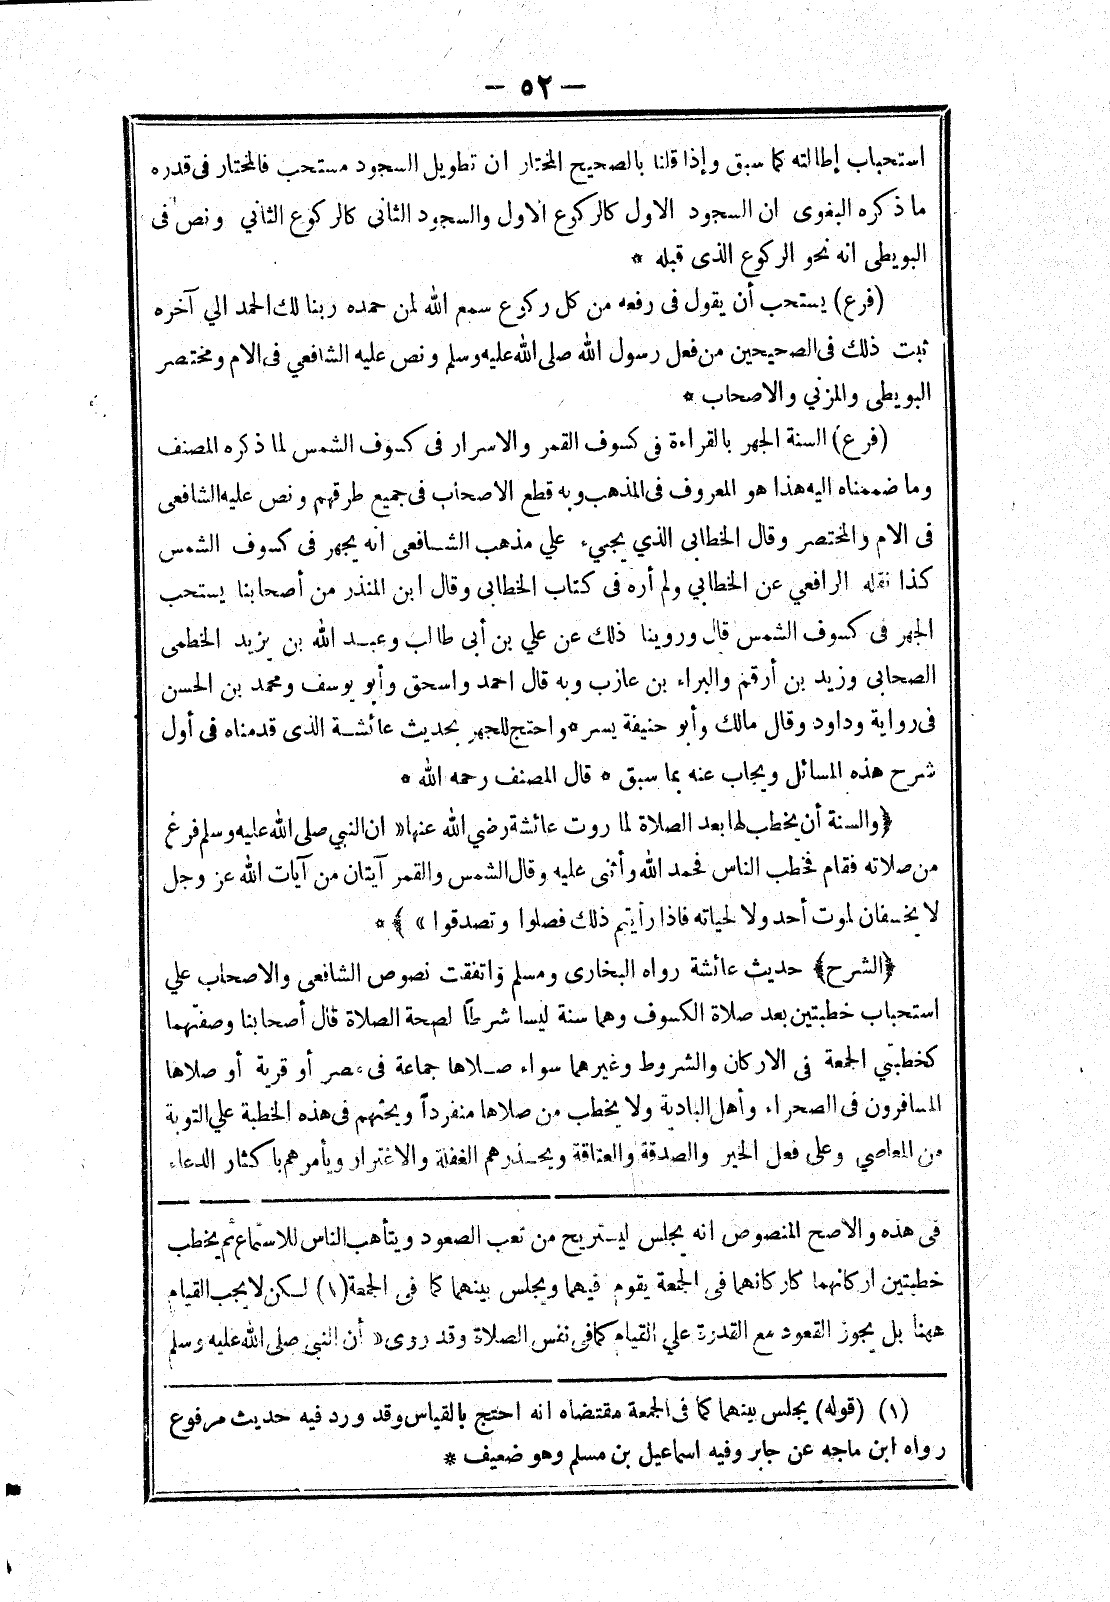 — ٥٢ —
استحباب إطالته كما سبق وإذا قلنا بالصحيح المختار ان تطويل السجود مستحب فالمختار فى قدره
ما ذكره البغوى ان السجود الاول كالركوع الاول والسجود الثانى كالركوع الثاني ونص فى
البويطى انه نحو الركوع الذى قبله *
(فرع) يستحب أن يقول فى رفعه من كل ركوع سمع الله لمن حمده ربنا لك الحمد الي آخره
ثبت ذلك فى الصحيحين من فعل رسول الله صلى الله عليه وسلم ونص عليه الشافعي فى الام ومختصر
البويطى والمزني والاصحاب *
(فرع) السنة الجهر بالقراءة فى كسوف القمر والاسرار فى كسوف الشمس لما ذكره المصنف
وما ضممناه اليه هذا هو المعروف فى المذهب وبه قطع الاصحاب فى جميع طرقهم ونص عليه الشافعى
فى الام والمختصر وقال الخطابى الذي يجيء علي مذهب الشافعى انه يجهر فى كسوف الشمس
كذا نقله الرافعي عن الخطابي ولم أره فى كتاب الخطابى وقال ابن المنذر من أصحابنا يستحب
الجهر فى كسوف الشمس قال وروينا ذلك عن علي بن أبى طالب وعبد الله بن يزيد الخطمى
الصحابى وزيد بن أرقم والبراء بن عازب وبه قال احمد واسحق وأبو يوسف ومحمد بن الحسن
فى رواية وداود وقال مالك وأبو حنيفة يسر * واحتج للجهر بحديث عائشة الذى قدمناه فى أول
شرح هذه المسائل ويجاب عنه بما سبق * قال المصنف رحمه الله *
﴿والسنة أن يخطب لها بعد الصلاة لما روت عائشة رضي الله عنها « ان النبي صلى الله عليه وسلم فرغ
من صلاته فقام فخطب الناس فحمد الله وأثنى عليه وقال الشمس والقمر آيتان من آيات الله عز وجل
لا يخسفان لموت أحد ولا لحياته فاذا رأيتم ذلك فصلوا وتصدقوا » ﴾ *
﴿الشرح﴾ حديث عائشة رواه البخارى ومسلم واتفقت نصوص الشافعى والاصحاب علي
استحباب خطبتين بعد صلاة الكسوف وهما سنة ليسا شرطاً لصحة الصلاة قال أصحابنا وصفتهما
كخطبتي الجمعة فى الاركان والشروط وغيرهما سواء صلاها جماعة فى مصر أو قرية أو صلاها
المسافرون فى الصحراء وأهل البادية ولا يخطب من صلاها منفرداً ويحثهم فى هذه الخطبة علي التوبة
من المعاصي وعلى فعل الخير والصدقة والعتاقة ويحذرهم الغفلة والاغترار ويأمرهم باكثار الدعاء
فى هذه والاصح المنصوص انه يجلس ليستريح من تعب الصعود ويتأهب الناس للاستماع ثم يخطب
خطبتين اركانهما كاركانهما فى الجمعة يقوم فيهما ويجلس بينهما كما فى الجمعة (١) لكن لا يجب القيام
ههنا بل يجوز القعود مع القدرة علي القيام كما فى نفس الصلاة وقد روى « أن النبي صلى الله عليه وسلم
(١) (قوله) يجلس بينهما كما فى الجمعة مقتضاه انه احتج بالقياس وقد ورد فيه حديث مرفوع
رواه ابن ماجه عن جابر وفيه اسماعيل بن مسلم وهو ضعيف *